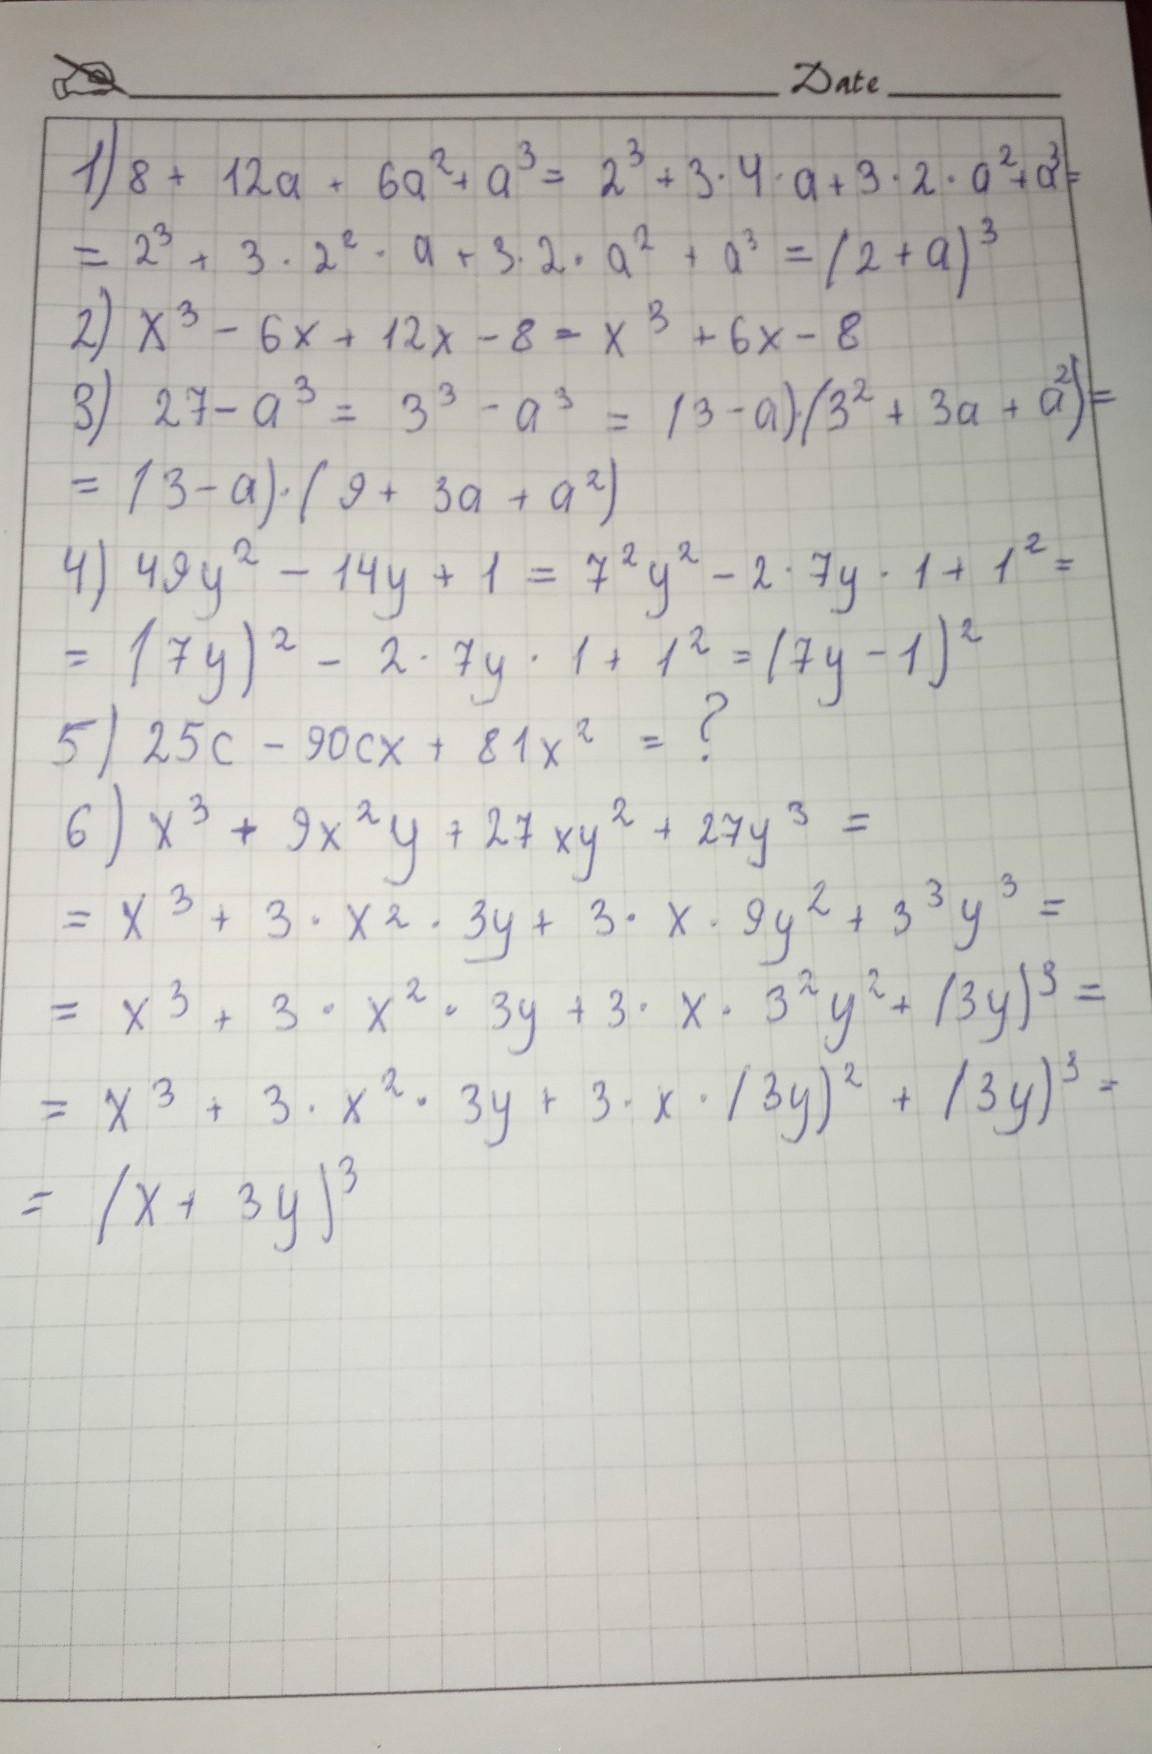 Date
1) 8 + 12a + 6a² + a³ = 2³ + 3·4·a + 3·2·a² + a³ =
= 2³ + 3·2²·a + 3·2·a² + a³ = (2 + a)³
2) x³ - 6x + 12x - 8 = x³ + 6x - 8
3) 27 - a³ = 3³ - a³ = (3 - a)·(3² + 3a + a²) =
= (3 - a)·(9 + 3a + a²)
4) 49y² - 14y + 1 = 7²y² - 2·7y·1 + 1² =
= (7y)² - 2·7y·1 + 1² = (7y - 1)²
5) 25c - 90cx + 81x² = ?
6) x³ + 9x²y + 27xy² + 27y³ =
= x³ + 3·x2·3y + 3·x·9y² + 3³y³ =
= x³ + 3·x²·3y + 3·x·3²y² + (3y)³ =
= x³ + 3·x²·3y + 3·x·(3y)² + (3y)³ =
= (x + 3y)³